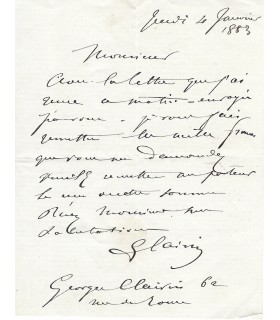 Jeudi 4 Janvier
1883
Monsieur
Avec la lettre que j'ai
reçue ce matin
pour vous je vous fais
remettre les mille francs
que vous me demandez
veuillez remettre au porteur
le reçu de cette somme
Monsieur mes
Salutations
GClairin
Georges Clairin 62
rue de Rome